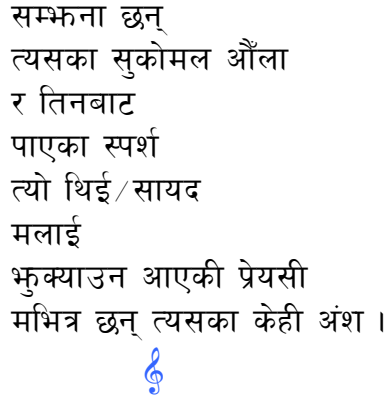 सम्झना छन्
त्यसका सुकोमल औँला
र तिनबाट
पाएका स्पर्श
त्यो थिई/सायद
मलाई
झुक्याउन आएकी प्रेयसी
मभित्र छन् त्यसका केही अंश ।